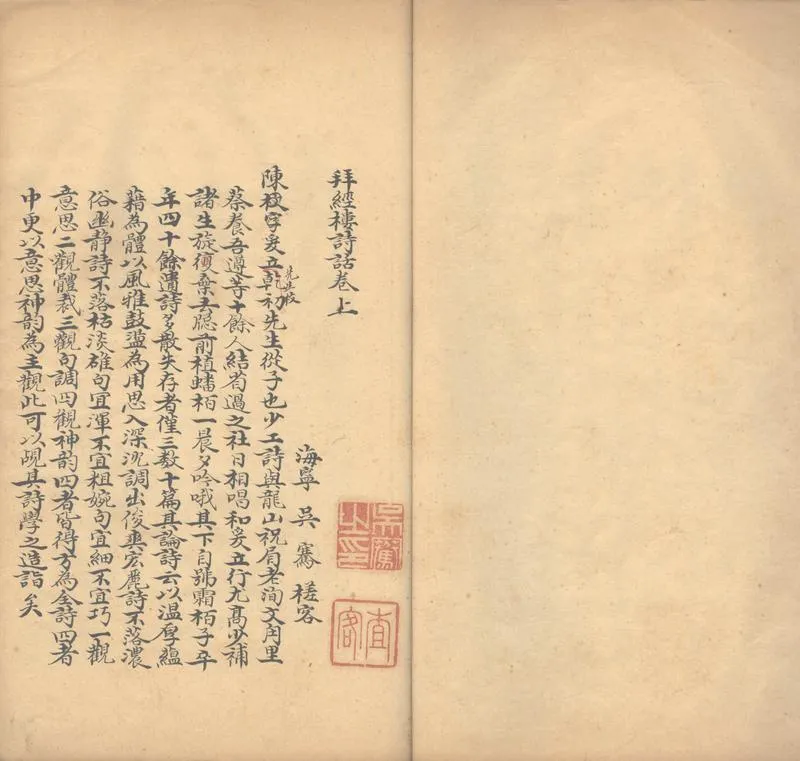 拜經樓詩話卷上
海寧 吳 騫 槎客
吳騫之印
查客
陳字爰立乾初先生從子也少工詩與龍山祝眉老洵文角里
蔡養吾遵等十餘人結茍過之社日相唱和爰立行尤高少補
諸生旋復棄去前植蟠栢一晨夕吟哦其下自號霜栢子卒
年四十餘遺詩多散失存者僅三數十篇其論詩云以溫厚蘊
藉為體以風雅鼓盪為用思入深沉調出俊爽宏麗詩不落濃
俗幽靜詩不落枯淡雄句宜渾不宜粗婉句宜細不宜巧一觀
意思二觀體裁三觀句調四觀神韵四者皆得方為全詩四者
中更以意思神韵為主觀此可以覘其詩學之造詣矣